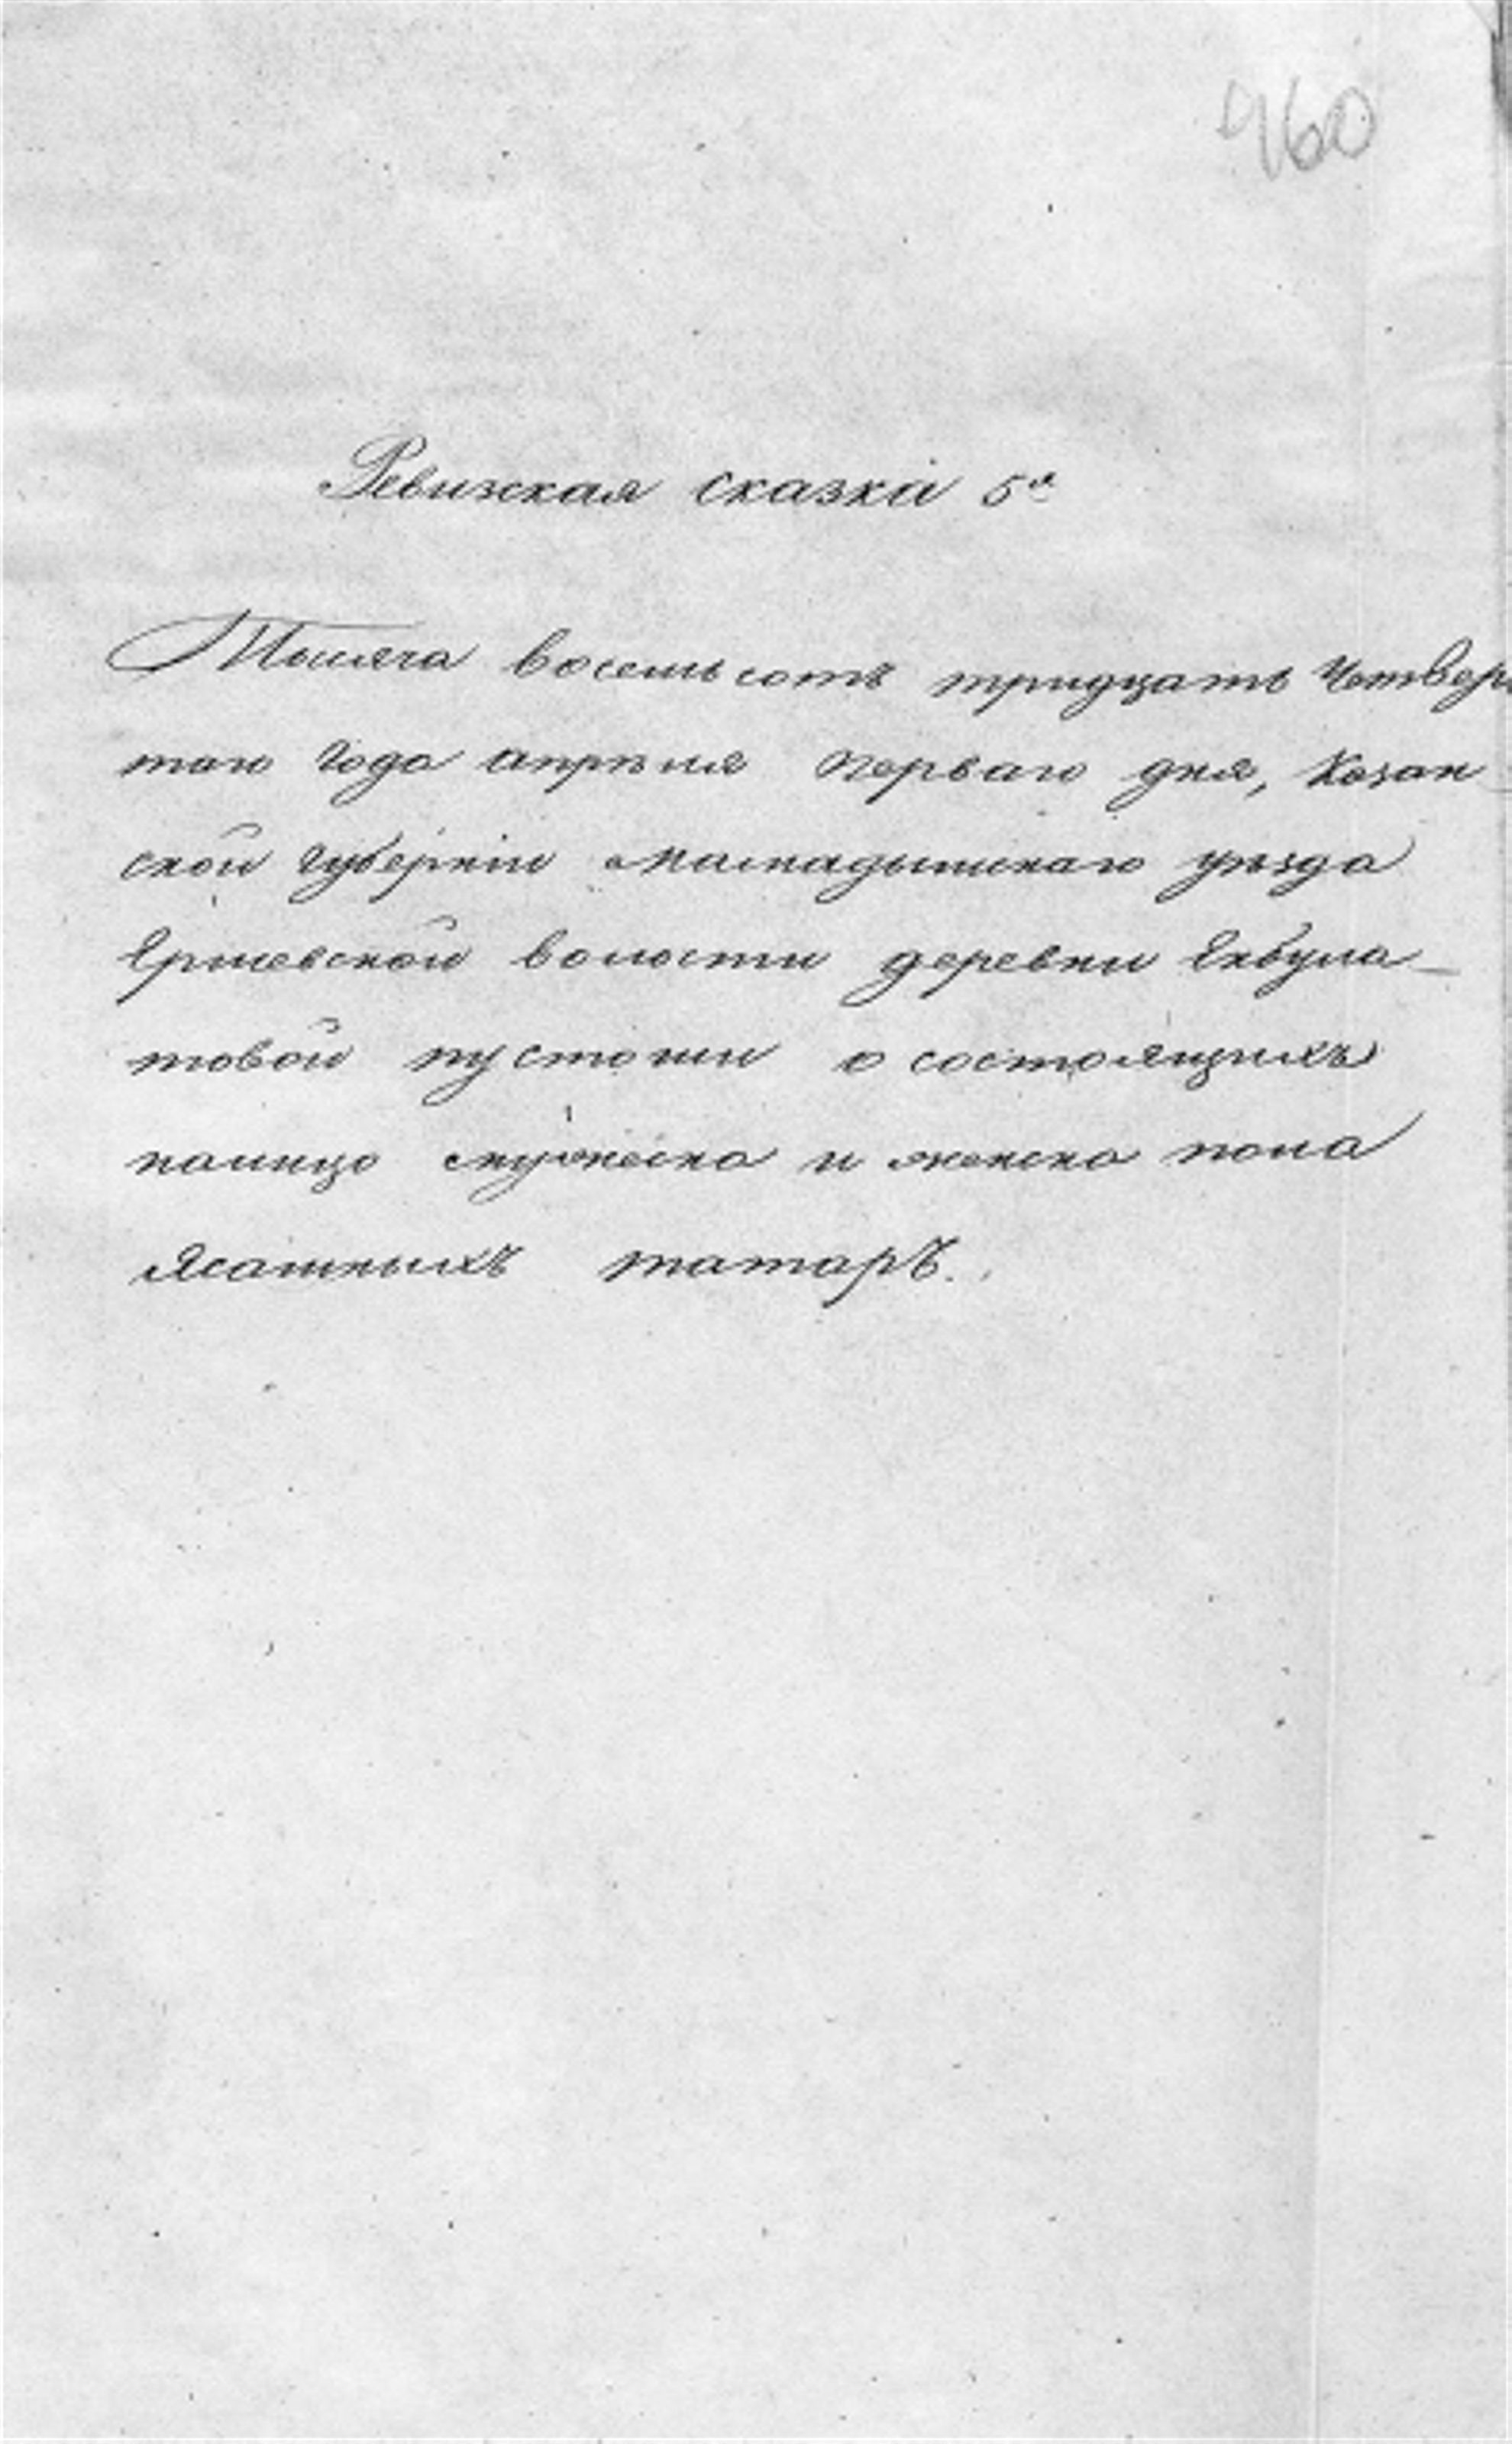 460
Ревизская сказка 5я
Тысяча восемьсотъ тридцать четвер
таго года апрѣля перваго дня, Казан
ской губерніи Мамадышскаго уѣзда
волости деревни Якбула-
товой пустоши о состоящихъ
налицо мужеска и женска пола
Ясашныхъ татаръ.